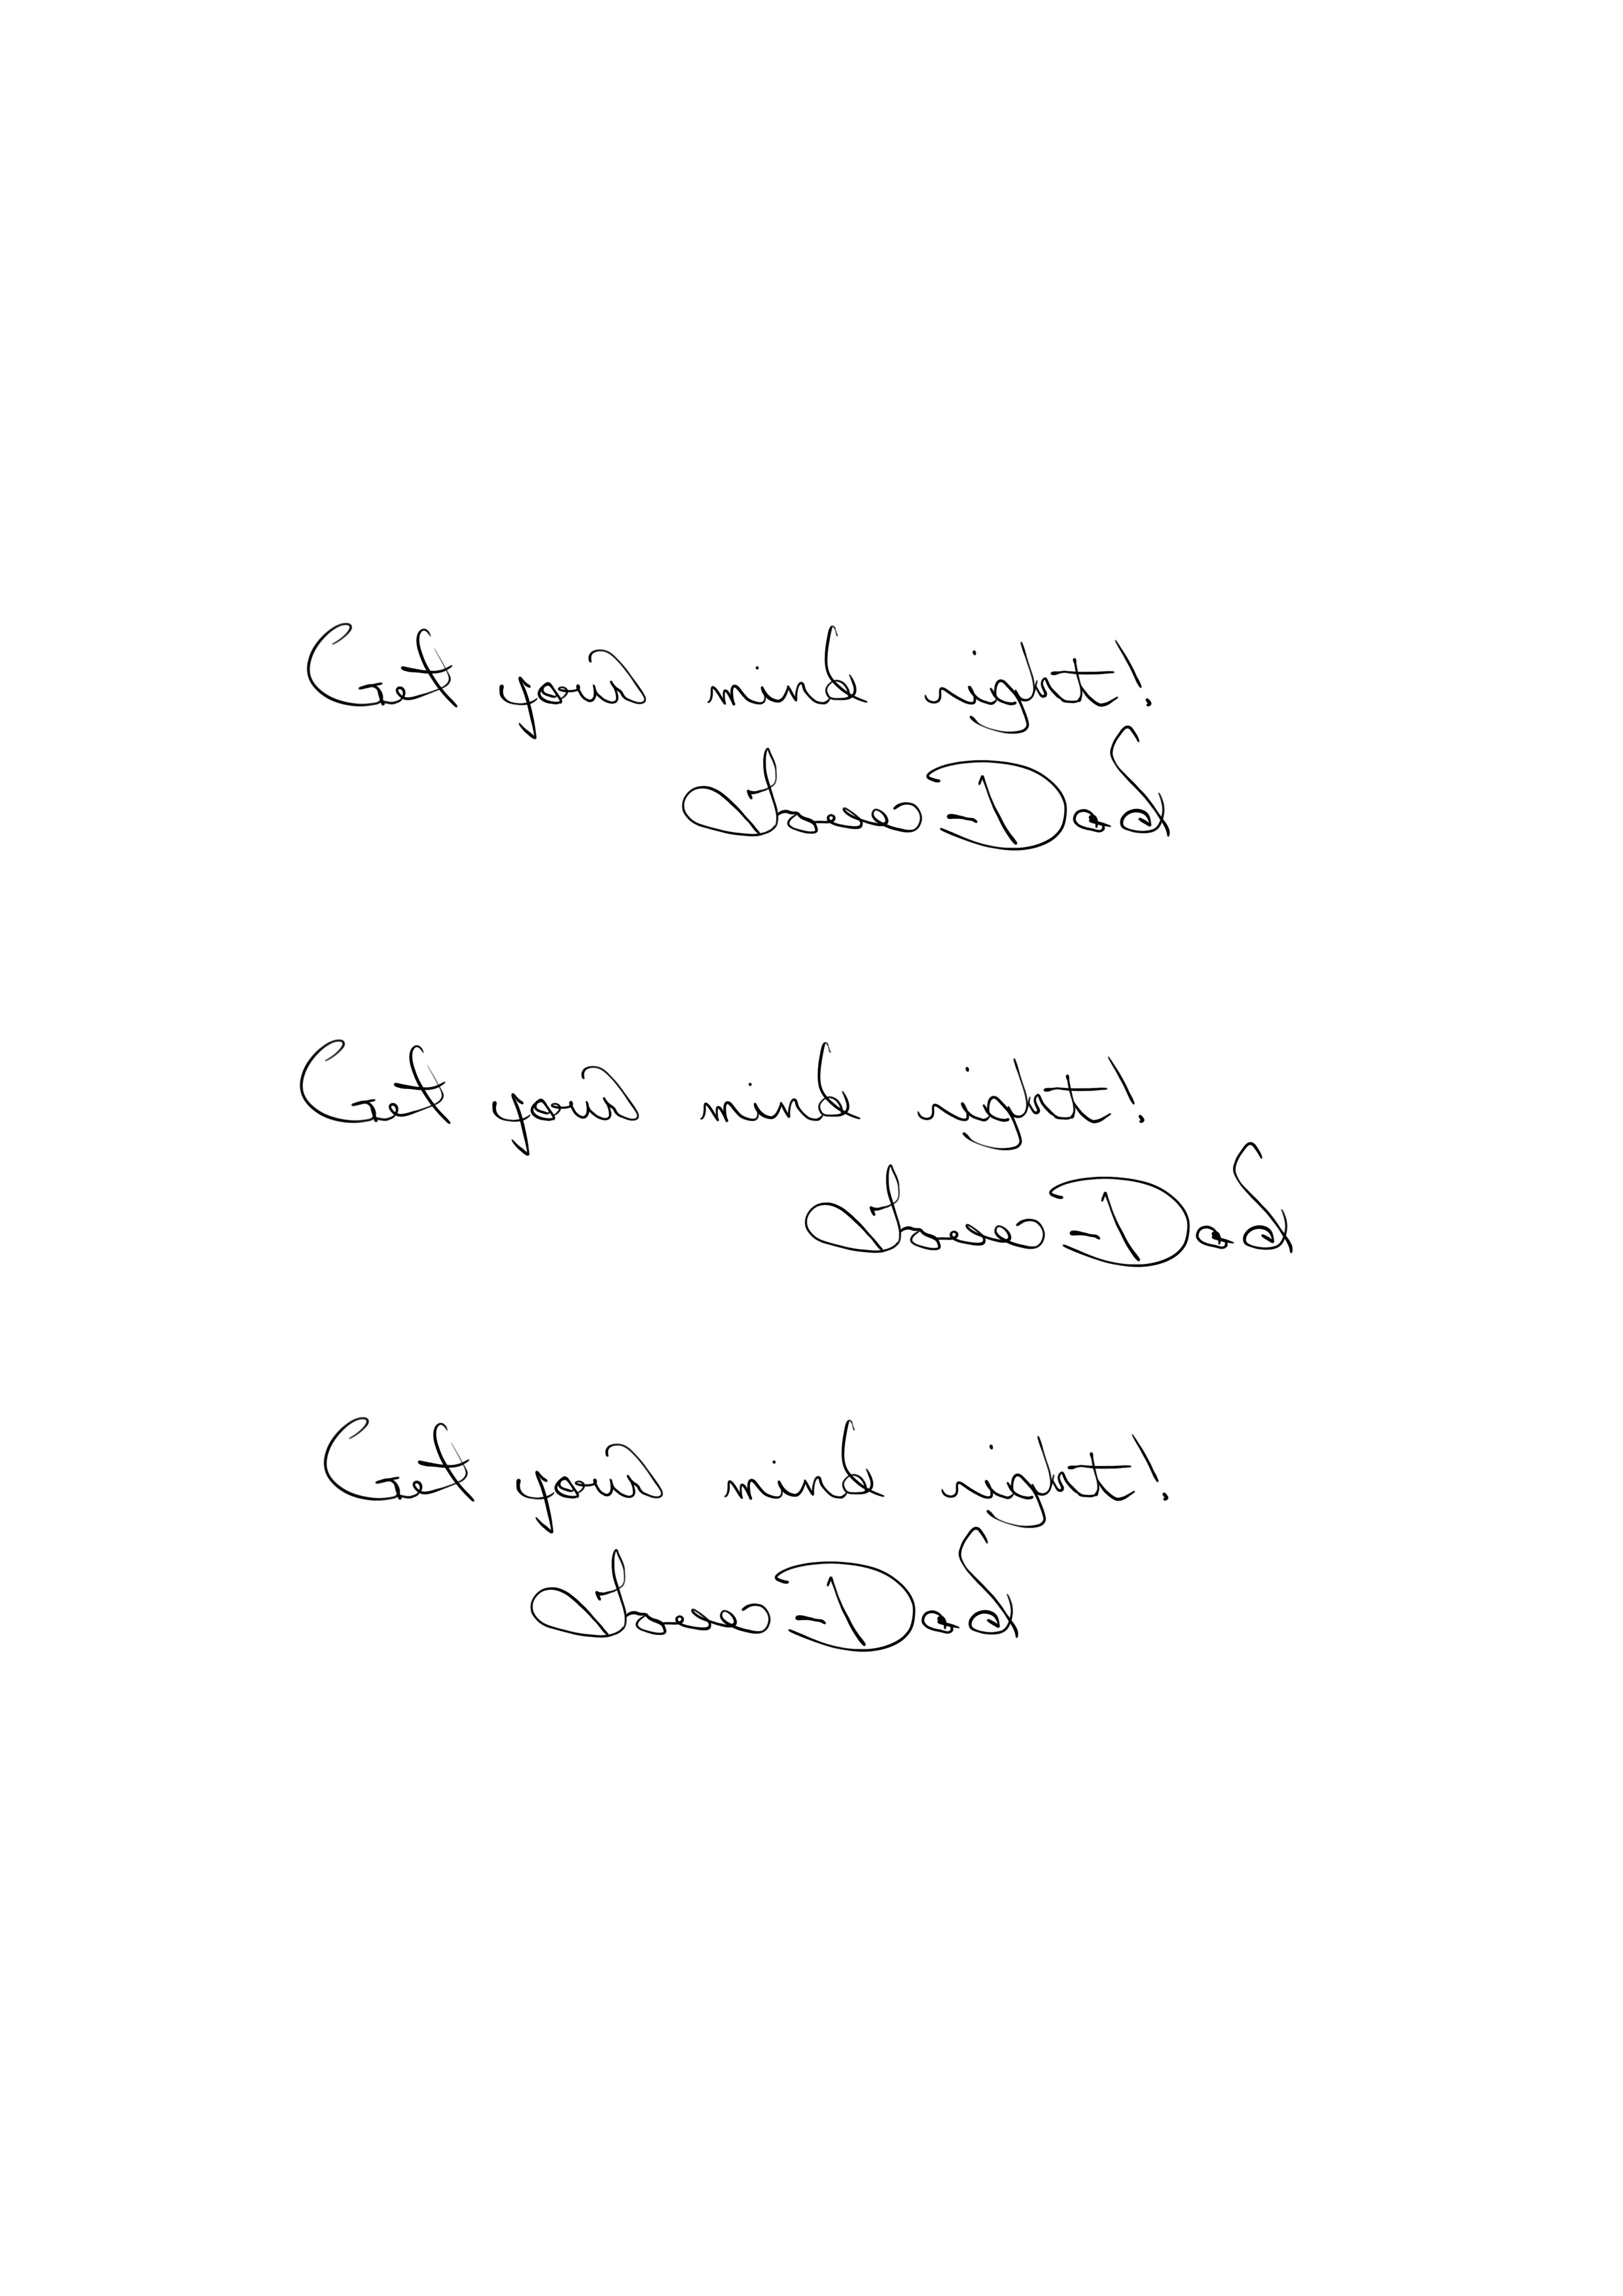 Get your mind right!
Love Dad
Get your mind right!
Love Dad
Get your mind right!
Love Dad